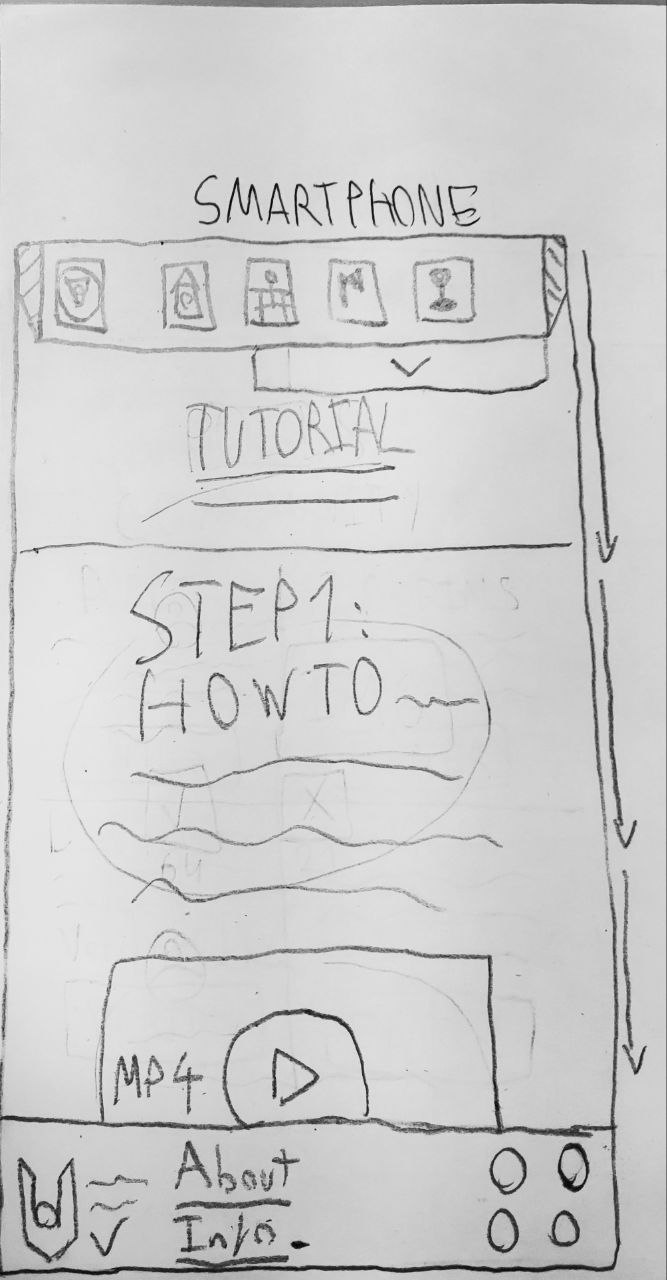 SMARTPHONE
TUTORIAL
STEP 1:
HOW TO
MP4
About
Info.